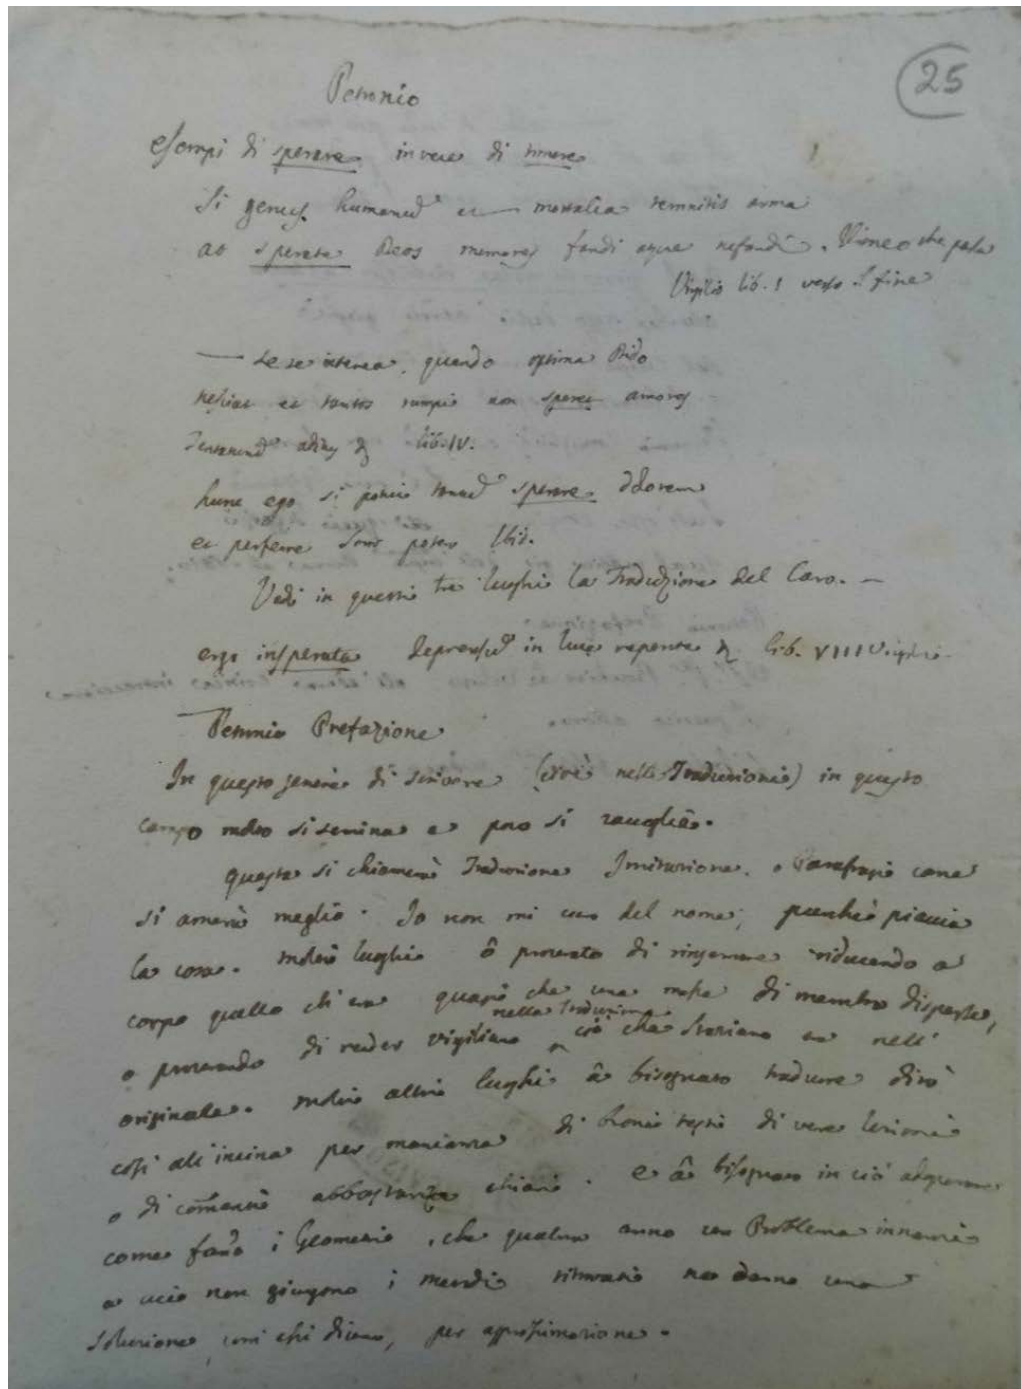 25
Petronio
esempi di sperare invece di timere
Si genus humanū et mortalia temnitis arma
at sperate Deos memores fandi atque nefandi. Ilioneo che parla
Virgilio lib. I verso il fine
sese interea, quando optima Dido
nesciat et tantos rumpi non speret amores
Tentaturū aditus & lib. IV.
hunc ego si potui tantū sperare dolorem
et perferre soror potero Ibid.
Vedi in questi tre luoghi la Traduzione del Caro.
ergo insperata deprensū in luce repente & lib. VIII Virgilio
Petronio Prefazione
In questo genere di scrivere (cioè nelle Traduzioni) in questo
campo molto si semina e poco si raccoglie.
questa si chiamerà Traduzione Imitazione, o Parafrasi come
si amerà meglio. Io non mi curo del nome, purchè piaccia
la cosa. molti luoghi ô procurato di rinserrare riducendo a
corpo quello ch'era quasi che una massa di membra disperse,
nella Traduzione
o procurando di render virgiliano ciò che Staziano era nell'
originale. molti altri luoghi â bisognato tradurre dirò
così all'incirca per mancanza di buoni testi di vere lezioni
o di comenti abbastanza chiari. e â bisognato in ciò adoperare
come fano i Geometri, che qualora anno un Problema innanzi
a cui non giungono i metodi ritrovati ne danno una
soluzione, com'essi dicono, per approssimazione.